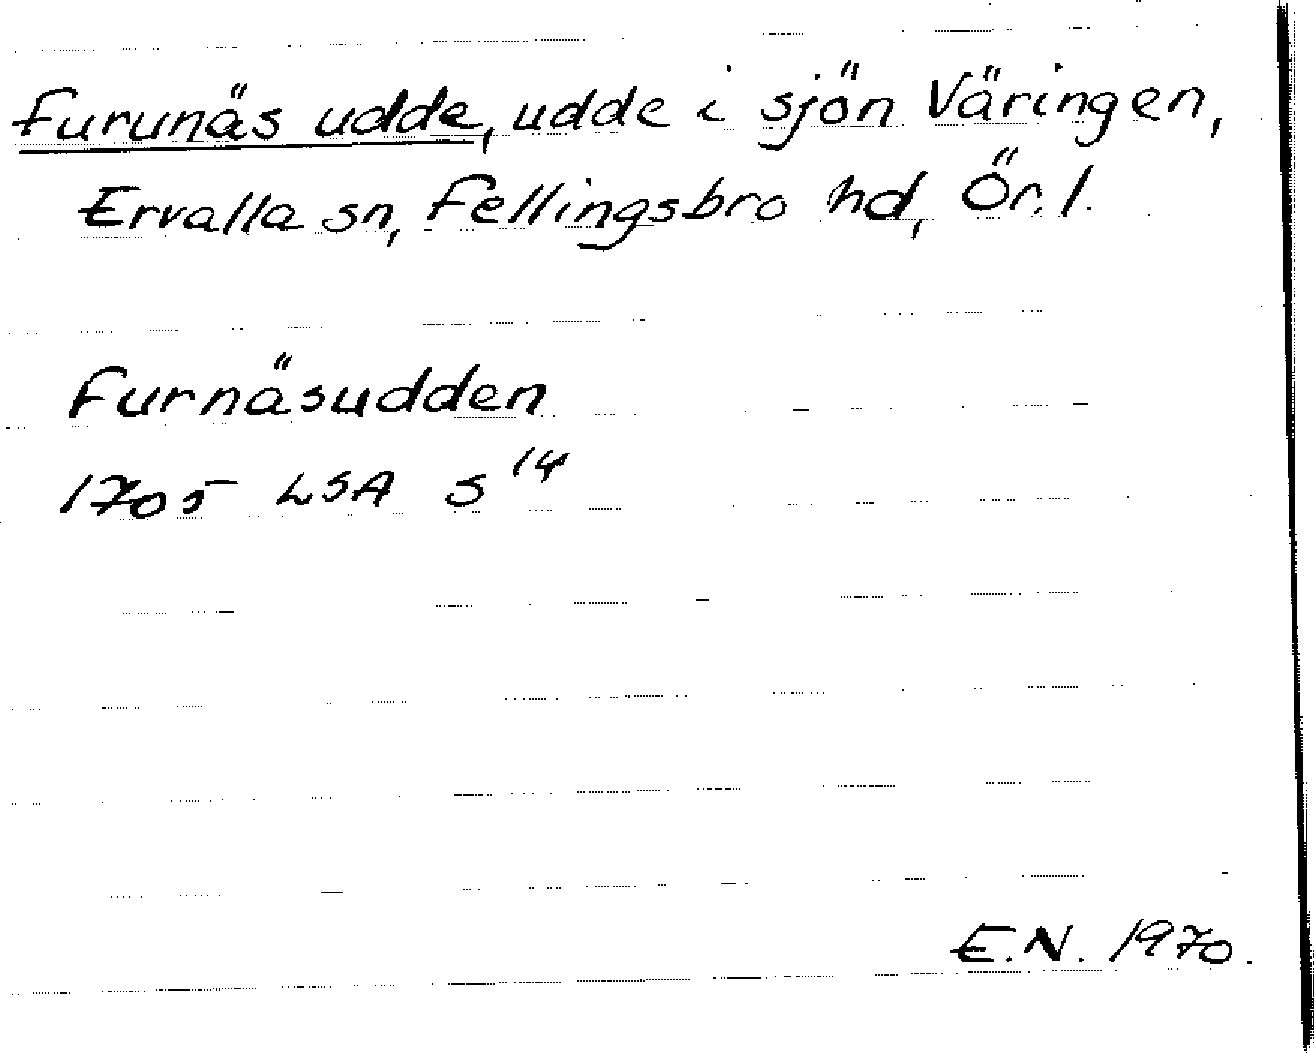 Furunäs udde, udde i sjön Väringen,
Ervalla sn, Fellingsbro hd, Ör. l.
Furnäsudden
1705 LSA S 14
E.N. 1970.